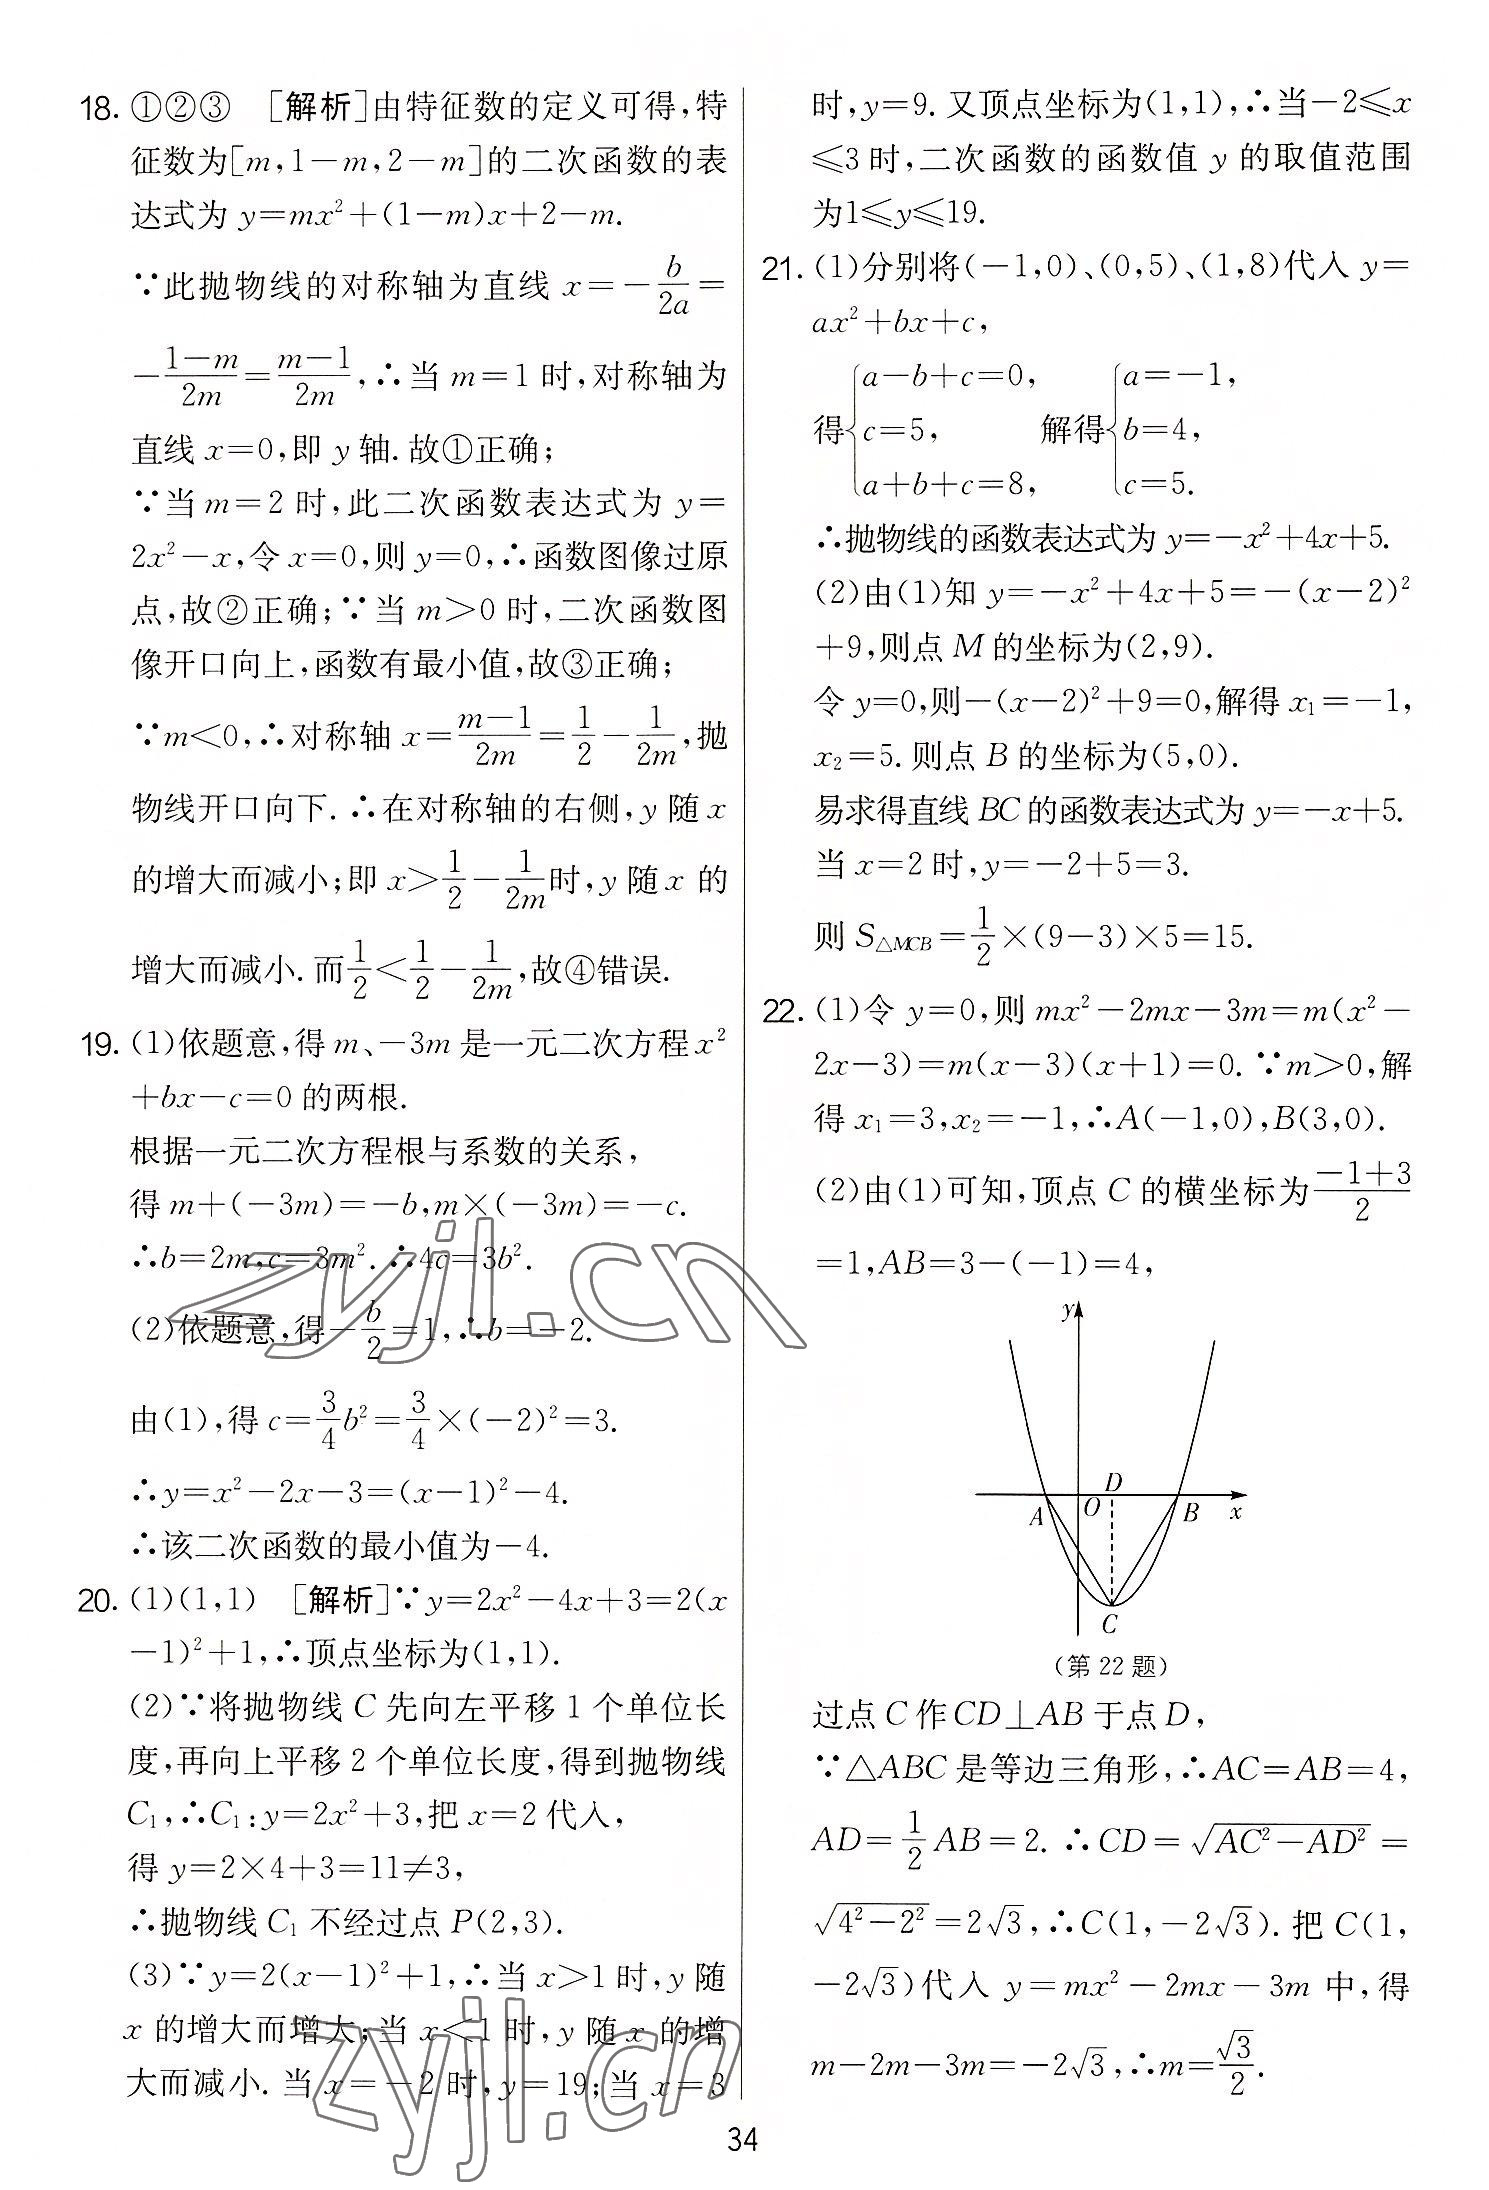 18. ①②③ [解析]由特征数的定义可得,特
征数为[m,1-m,2-m]的二次函数的表
达式为 y=mx²+(1-m)x+2-m.
∵此抛物线的对称轴为直线 x=-b/2a=
-(1-m)/2m=(m-1)/2m,∴当 m=1 时,对称轴为
直线 x=0,即 y 轴.故①正确;
∵当 m=2 时,此二次函数表达式为 y=
2x²-x,令 x=0,则 y=0,∴函数图像过原
点,故②正确;∵当 m>0 时,二次函数图
像开口向上,函数有最小值,故③正确;
∵m<0,∴对称轴 x=(m-1)/2m=1/2-1/2m,抛
物线开口向下.∴在对称轴的右侧,y 随 x
的增大而减小;即 x>1/2-1/2m时,y 随 x 的
增大而减小.而1/2<1/2-1/2m,故④错误.
19. (1)依题意,得 m、-3m 是一元二次方程 x²
+bx-c=0 的两根.
根据一元二次方程根与系数的关系,
得 m+(-3m)=-b,m×(-3m)=-c.
∴b=2m,c=3m².∴4c=3b².
(2)依题意,得-b/2=1,∴b=-2.
由(1),得 c=3/4b²=3/4×(-2)²=3.
∴y=x²-2x-3=(x-1)²-4.
∴该二次函数的最小值为-4.
20. (1)(1,1) [解析]∵y=2x²-4x+3=2(x
-1)²+1,∴顶点坐标为(1,1).
(2)∵将抛物线 C 先向左平移 1 个单位长
度,再向上平移 2 个单位长度,得到抛物线
C₁,∴C₁:y=2x²+3,把 x=2 代入,
得 y=2×4+3=11≠3,
∴抛物线 C₁ 不经过点 P(2,3).
(3)∵y=2(x-1)²+1,∴当 x>1 时,y 随
x 的增大而增大;当 x<1 时,y 随 x 的增
大而减小.当 x=-2 时,y=19;当 x=3
时,y=9.又顶点坐标为(1,1),∴当-2≤x
≤3 时,二次函数的函数值 y 的取值范围
为1≤y≤19.
21. (1)分别将(-1,0)、(0,5)、(1,8)代入 y=
ax²+bx+c,
得{a-b+c=0, c=5, a+b+c=8, 解得{a=-1, b=4, c=5.
∴抛物线的函数表达式为 y=-x²+4x+5.
(2)由(1)知 y=-x²+4x+5=-(x-2)²
+9,则点 M 的坐标为(2,9).
令 y=0,则-(x-2)²+9=0,解得 x₁=-1,
x₂=5.则点 B 的坐标为(5,0).
易求得直线 BC 的函数表达式为 y=-x+5.
当 x=2 时,y=-2+5=3.
则 S△MCB=1/2×(9-3)×5=15.
22. (1)令 y=0,则 mx²-2mx-3m=m(x²-
2x-3)=m(x-3)(x+1)=0.∵m>0,解
得 x₁=3,x₂=-1,∴A(-1,0),B(3,0).
(2)由(1)可知,顶点 C 的横坐标为(-1+3)/2
=1,AB=3-(-1)=4,
y
D
A O B x
C
(第 22 题)
过点 C 作 CD⊥AB 于点 D,
∵△ABC 是等边三角形,∴AC=AB=4,
AD=1/2 AB=2.∴CD=√(AC²-AD²)=
√(4²-2²)=2√3,∴C(1,-2√3).把 C(1,
-2√3)代入 y=mx²-2mx-3m 中,得
m-2m-3m=-2√3,∴m=√3/2.
34
zyjl.cn
zyjl.cn